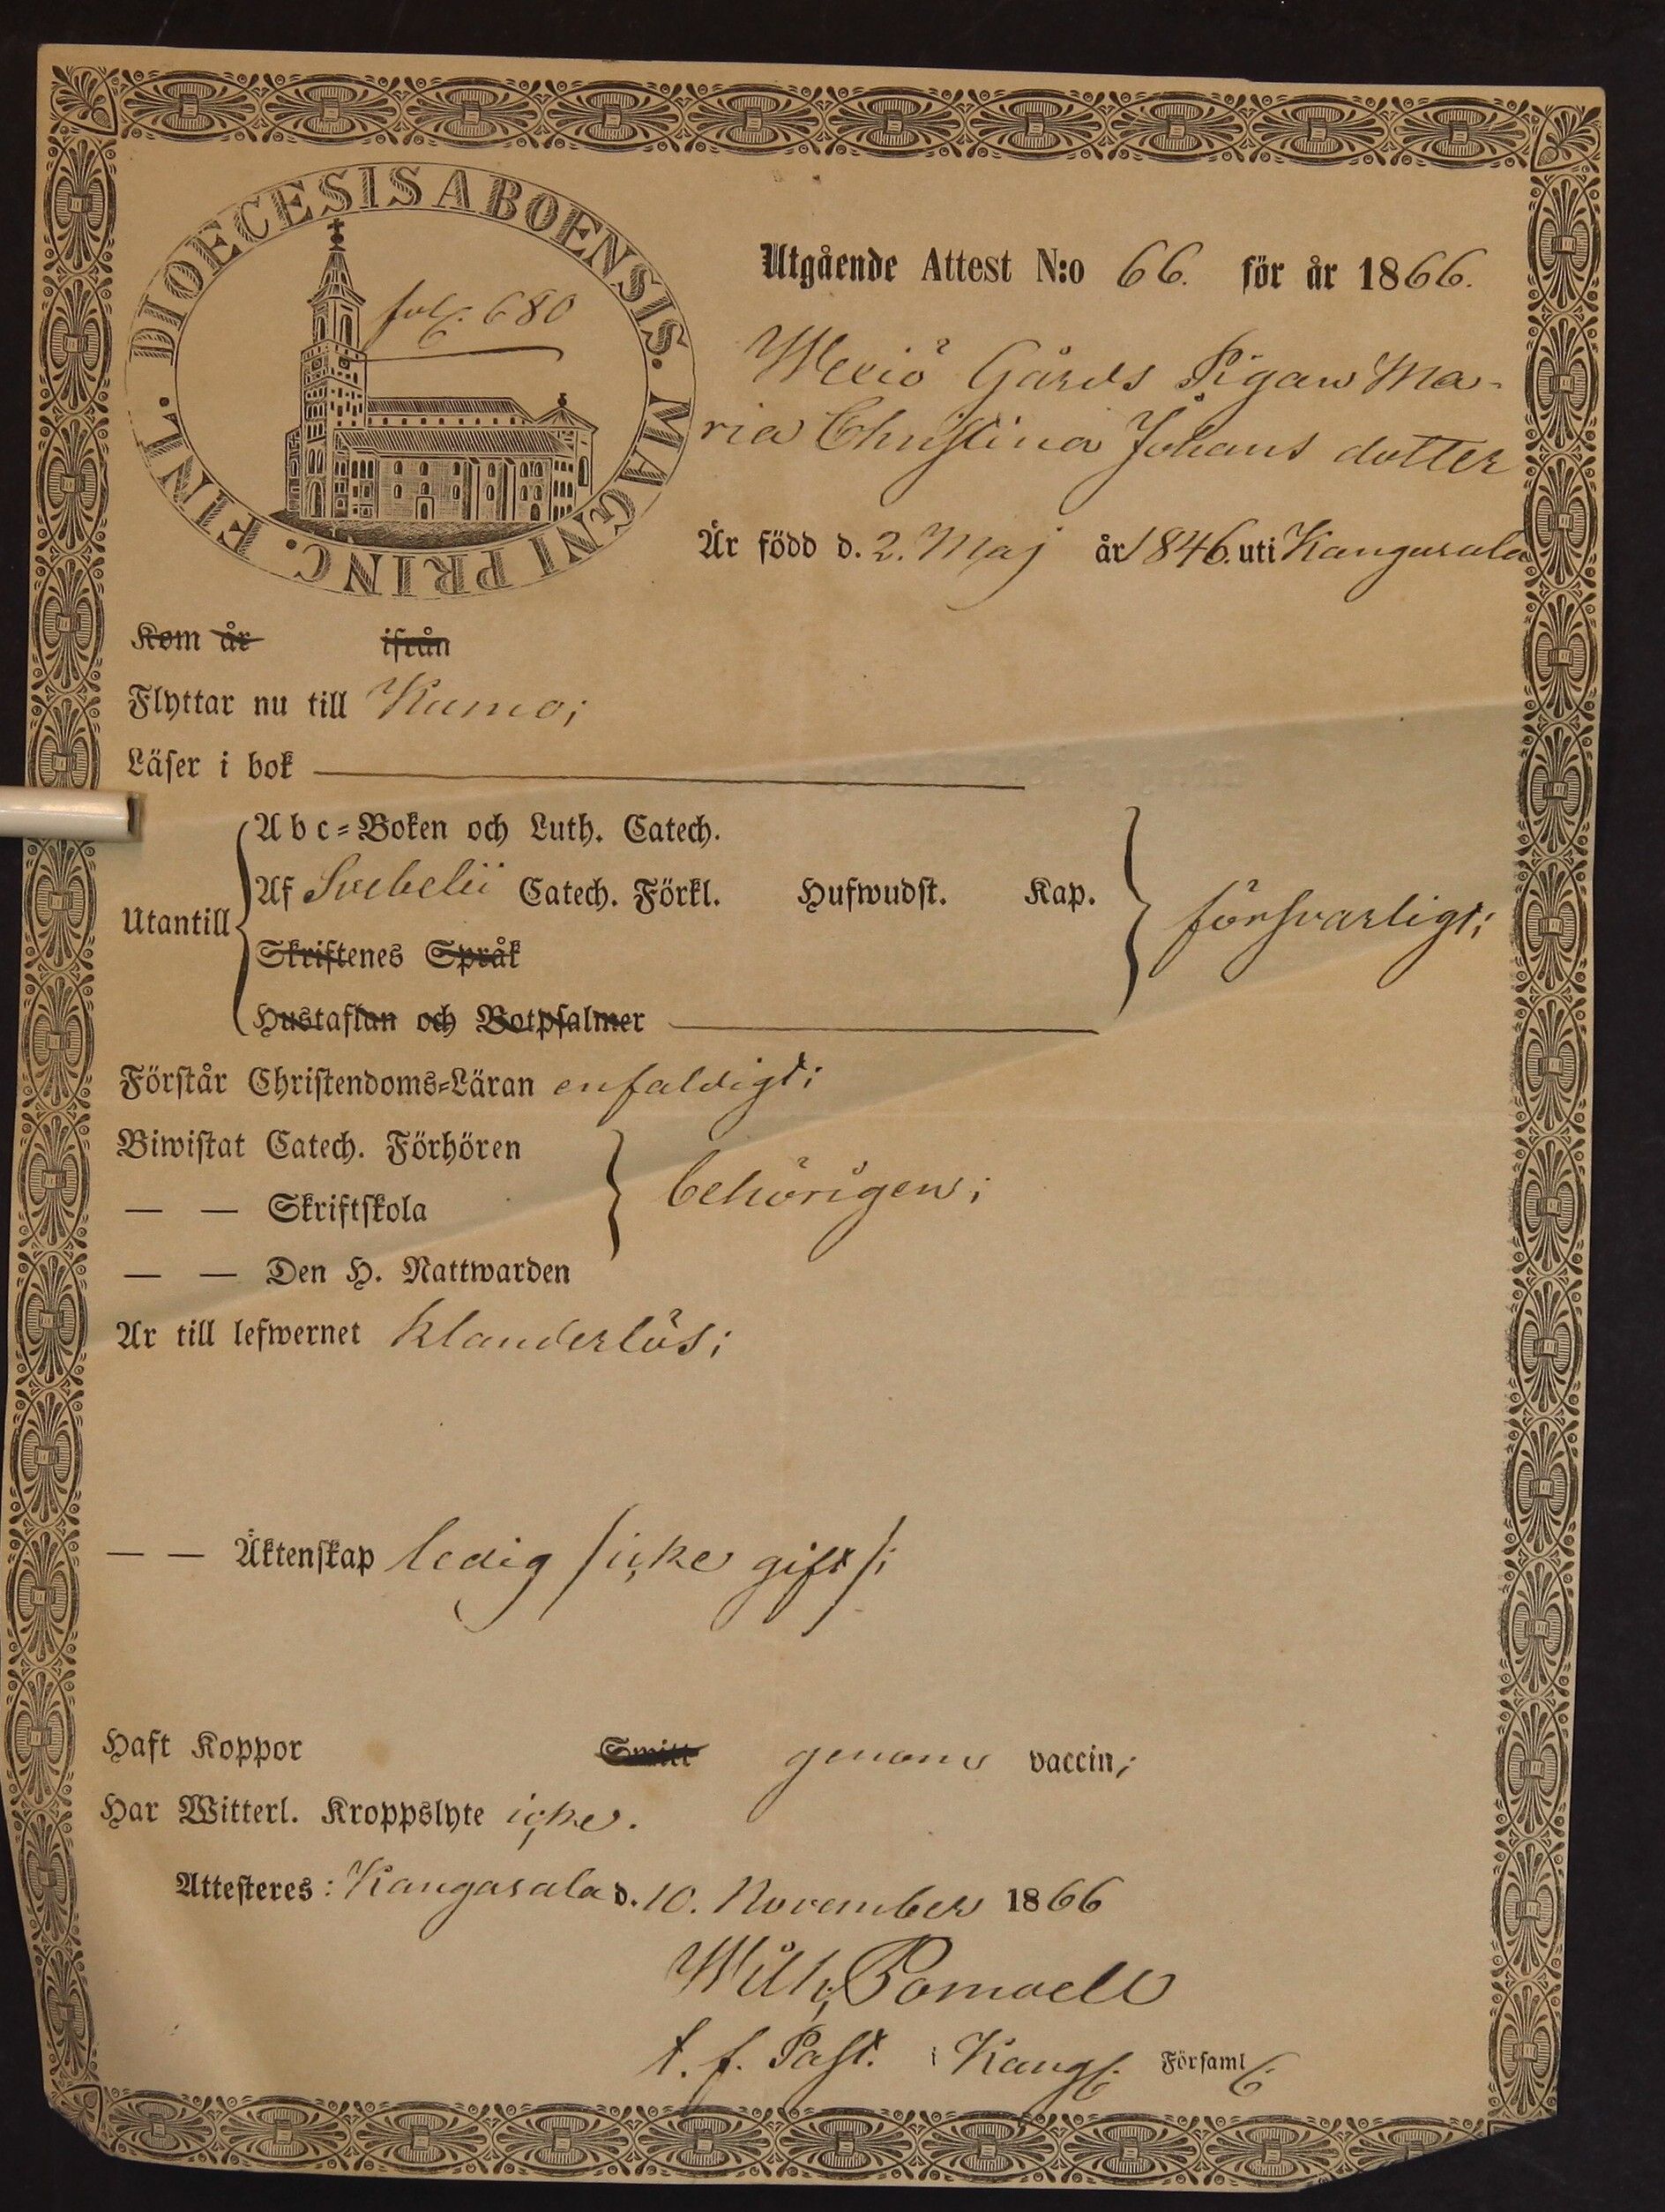 DIOECESIS ABOENSIS. MAGNI PRINC. FINL.
fol. 680
Utgående Attest N:o 66. för år 1866.
Wexiö Gårds Pigan Ma-
ria Christina Johans dotter
Är född d. 2. Maj år 1846. uti Kangasala
Kom år ifrån
Flyttar nu till Kumo;
Läser i bok
Utantill
Abc-Boken och Luth. Catech.
Af Svebelii Catech. Förkl. Hufwudst. Kap.
försvarligt;
Skriftenes Språk
Hustaflan och Botpsalmer
Förstår Christendoms-Läran enfaldigt;
Biwistat Catech. Förhören
— — Skriftskola
behörigen;
— — Den H. Nattwarden
Är till lefwernet klanderlös;
— — Äktenskap ledig /icke gift/;
Haft Koppor Smitt genom vaccin;
Har Witterl. Kroppslyte icke.
Attesteres: Kangasala d. 10. November 1866
Wilh. Pomoell
t. f. Past. i Kang. Församl.